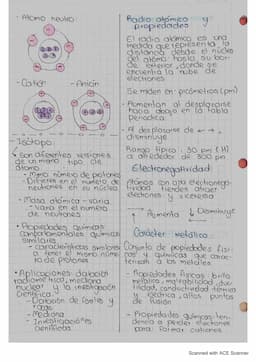 · Átomo neutro
· Catión
· Anión
· Isótopo
Son diferentes versiones
de un mismo tipo de
átomo
· Mismo número de protones
Difieren en el número de
neutrones en su núcleo
· Masa atómica - varía
- Varía en el número
de neutrones
· Propiedades químicas
similares
- características similares
al tener el mismo núme-
ro de protones
· Aplicaciones: datación
radiometrica, medicina
nuclear y la investigación
científica
- Datación de fósiles y
rocas
- Medicina
- Investigaciones
científicas
Radio atómico y
propiedades
El radio atómico es una
medida que representa la
distancia desde el núcleo
del átomo hasta su bor-
de exterior, donde se
encuentra la nube de
electrones
Se miden en: picómetros (pm)
· Aumentan al desplazarse
hacia abajo en la tabla
periódica
· Al desplazarse de
disminuye
Rango típico: 30 pm (H)
a alrededor de 300 pm
Electronegatividad
Átomos con alta electronega-
tividad tienden atraer
electrones y viceversa
Aumenta
Disminuye
Carácter metálico
Conjunto de propiedades físi-
cas y químicas que carac-
terizan a los metales
· Propiedades físicas: brillo
metálico, maleabilidad, duc-
tilidad, conductividad térmica
y eléctrica, altos puntos
de fusión
· Propiedades químicas: ten-
dencia a perder electrones
para formar cationes
Scanned with ACE Scanner